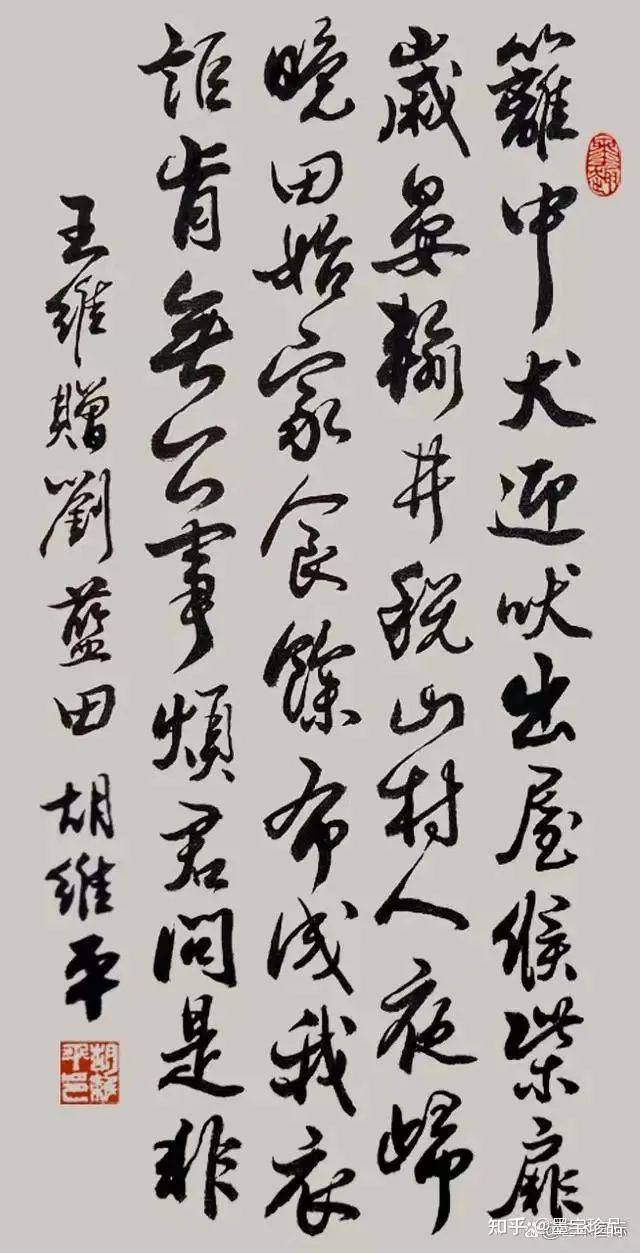 籬中犬迎吠出屋候柴扉
嵗晏輸井稅山村人夜歸
晚田始家食餘布成我衣
詎肯無公事煩君問是非
王維贈劉藍田 胡維平
知乎 @墨宝珍品